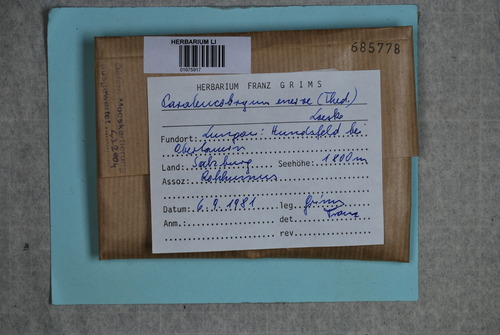 HERBARIUM LI
01075917
685778
HERBARIUM FRANZ GRIMS
Paraleucobryum enerve (Thed.)
Loeske
Fundort: Lungau: Hundsfeld bei
Obertauern
Land: Salzburg Seehöhe: 1800m
Assoz: Rohhumus
Datum: 6.9.1981 leg. Grims
Anm.: det. Franz
rev.